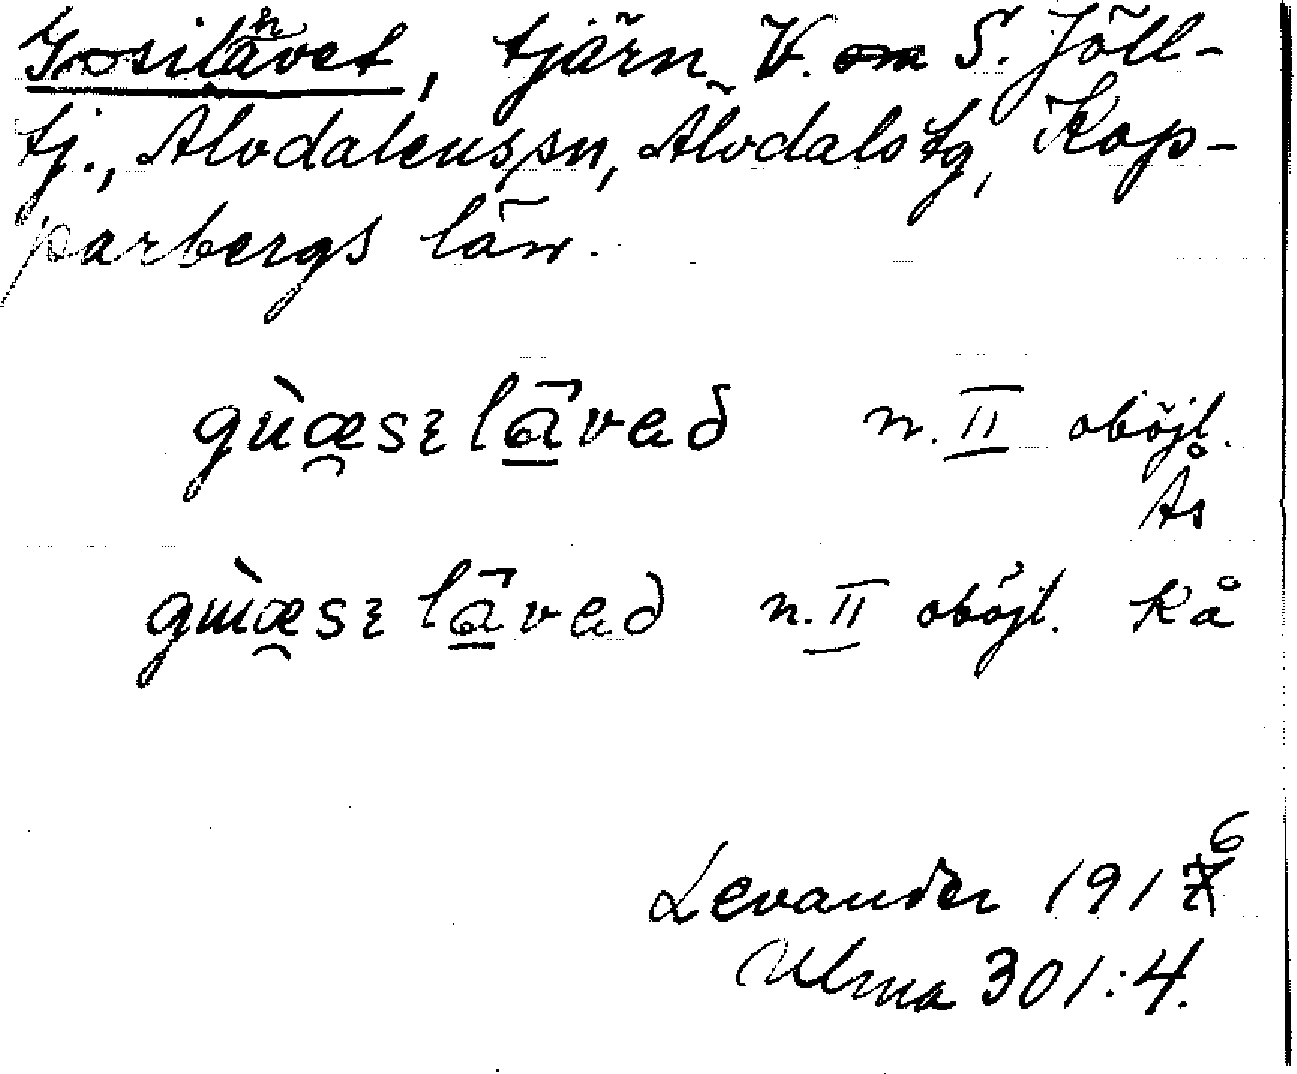 Gosilåvet, tjärn V. om S. Jöll-
tj., Älvdalens sn, Älvdals tg, Kop-
parbergs län.
gùæsɛ lāveð n. II oböjl.
Ås
gɯ̀æsɛ lāveð n. II oböjl. Kå
Levander 1916
Ulma 301:4.